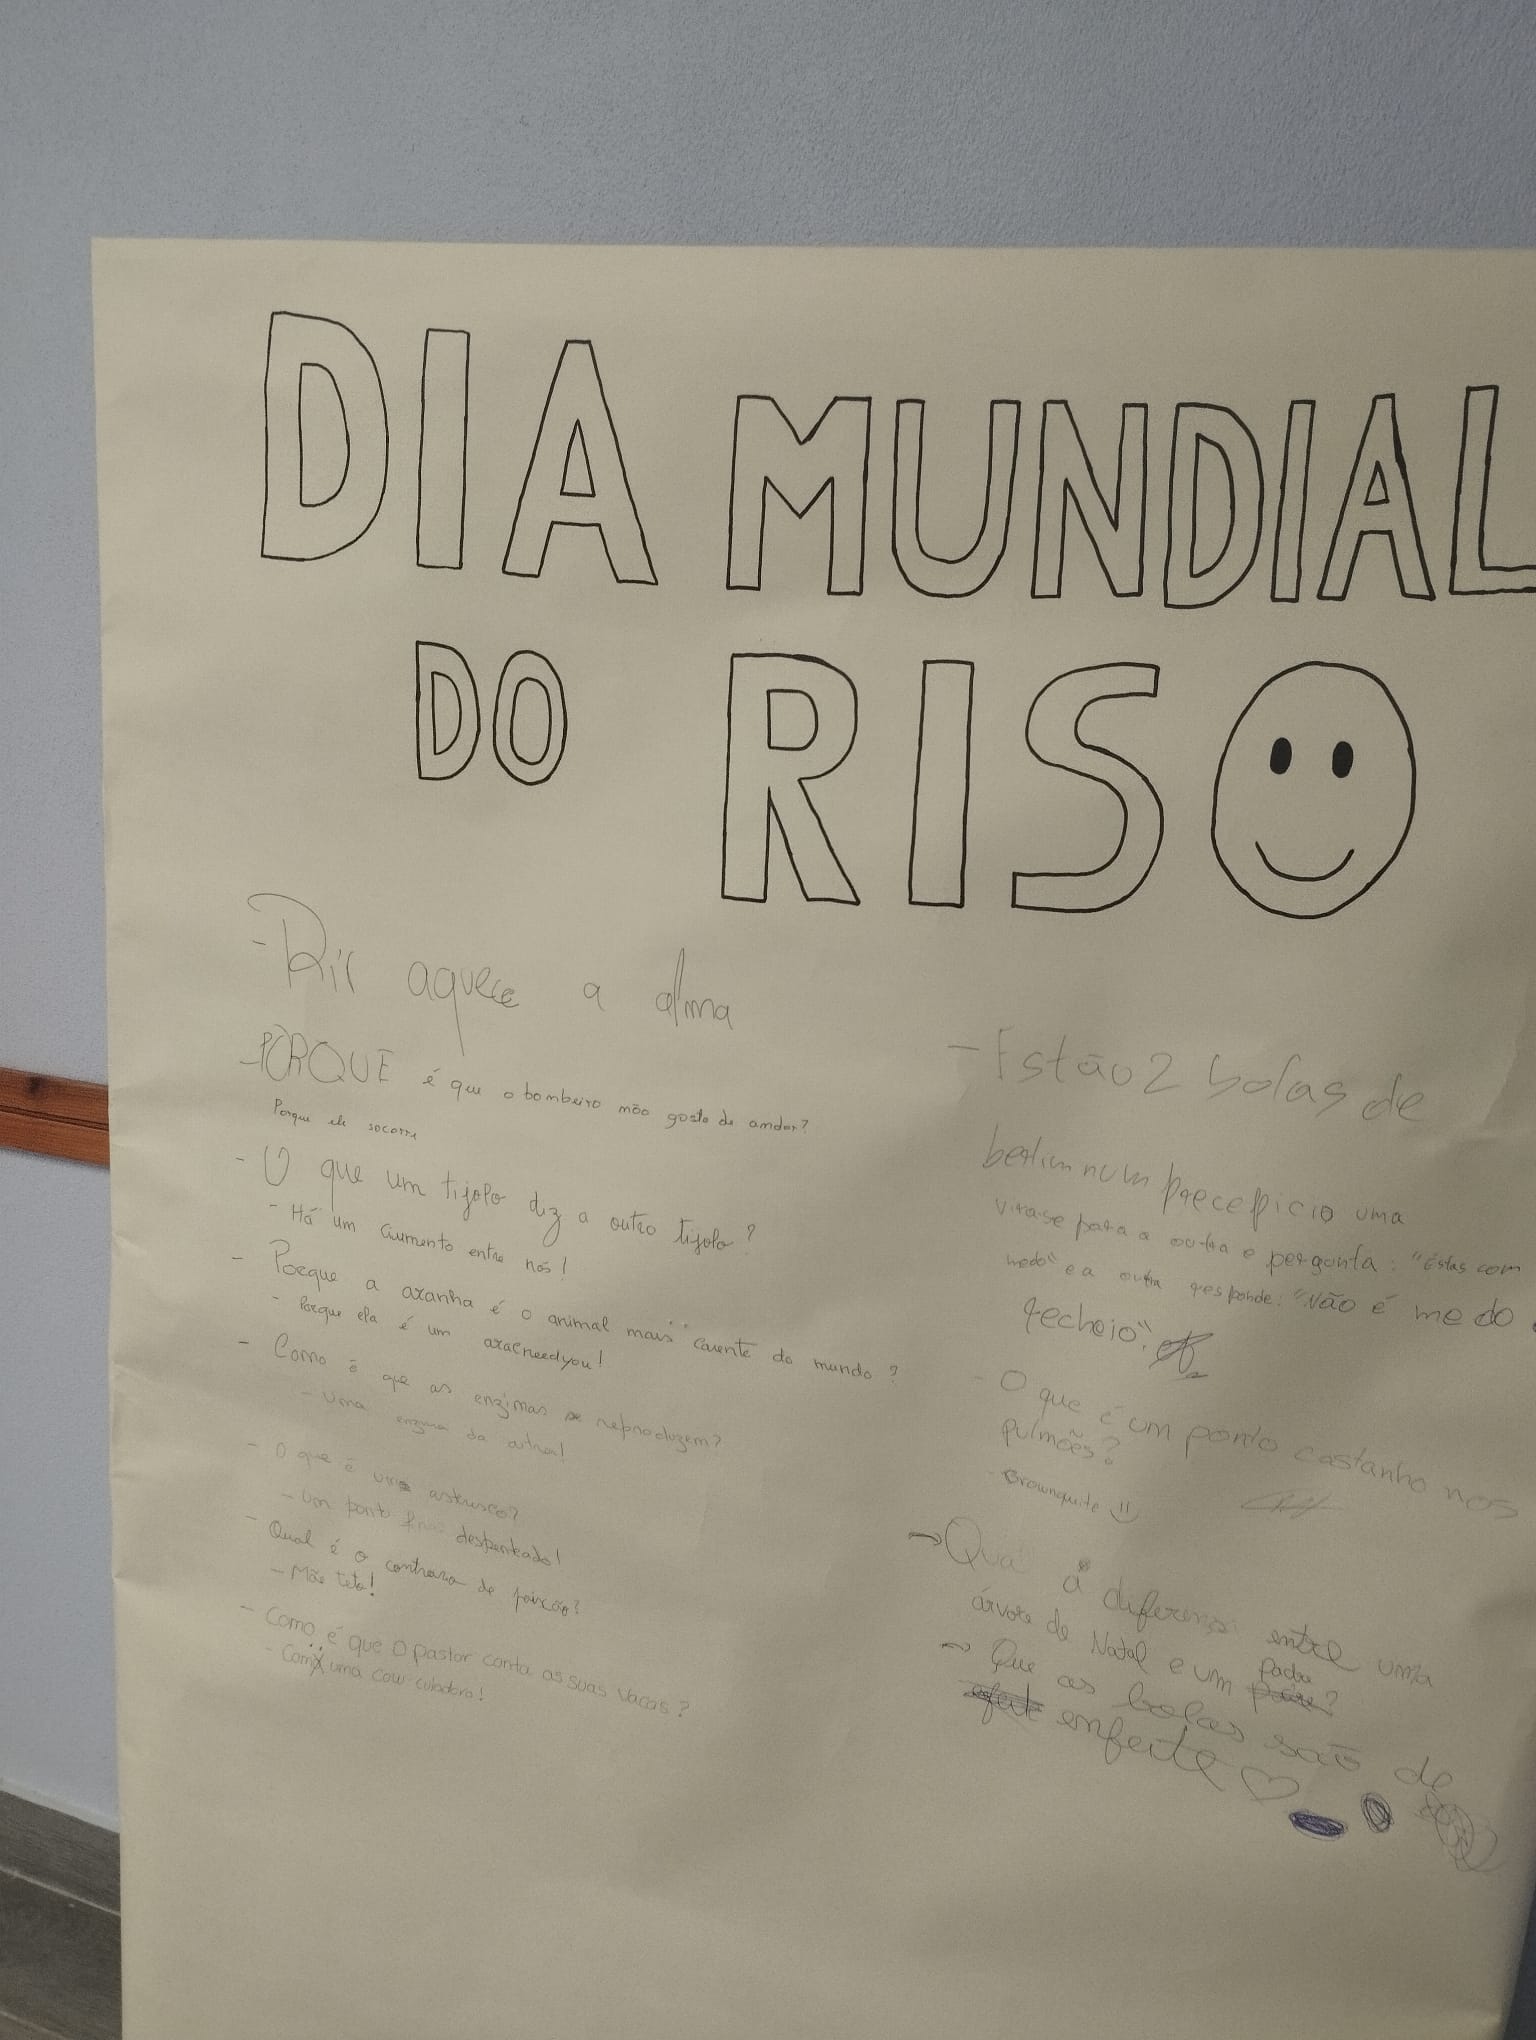 DIA MUNDIAL
DO RISO
- Rir aquece a alma
- PORQUE é que o bombeiro não gosta de andar?
Porque ele socorre
- O que um tijolo diz a outro tijolo?
- Há um ciumento entre nós!
- Porque a aranha é o animal mais carente do mundo?
- Porque ela é um aracneedyou!
- Como é que as enzimas se reproduzem?
- Uma enzima da outra!
- O que é um asterisco?
- Um ponto final despenteado!
- Qual é o contrario de paixão?
- Mãe teto!
- Como é que o pastor conta as suas vacas?
- Com uma cow-culadora!
- Estão 2 bolas de
berlim num precepicio uma
vira-se para a outra e pergunta: "Estas com
medo" e a outra responde: "Não é medo é
recheio".
- O que é um ponto castanho nos
pulmões?
- Brownquite
→ Qual a diferença entre uma
árvore de Natal e um padre?
→ Que as bolas são de
enfeite